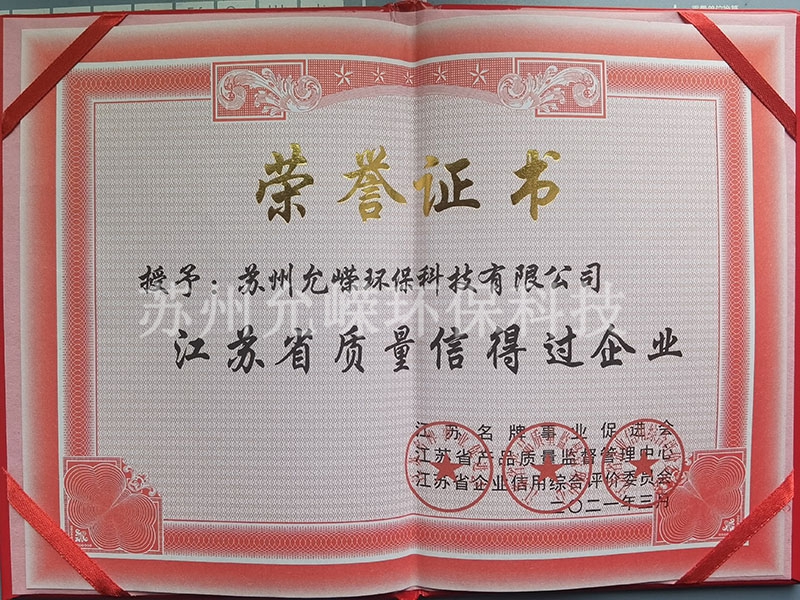 荣誉证书
授予：苏州允嵘环保科技有限公司
苏州允嵘环保科技
江苏省质量信得过企业
江苏名牌事业促进会
江苏省产品质量监督管理中心
江苏省企业信用综合评价委员会
二〇二一年三月